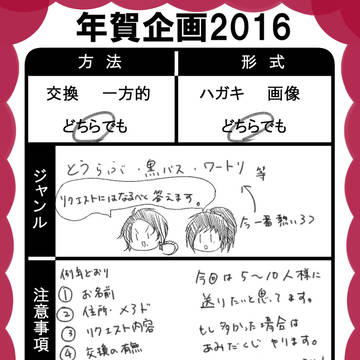 年賀企画2016
方法
形式
交換 一方的
どちらでも
ハガキ 画像
どちらでも
ジャンル
とうらぶ・黒バス・ワートリ 等
リクエストにはなるべく答えます。
今一番熱い3つ
注意事項
例年どおり
① お名前
② 住所・メアド
③ リクエスト内容
④ 交換の有無
今回は5〜10人様に
送りたいと思ってます。
もし多かった場合は
あみだくじ やります。